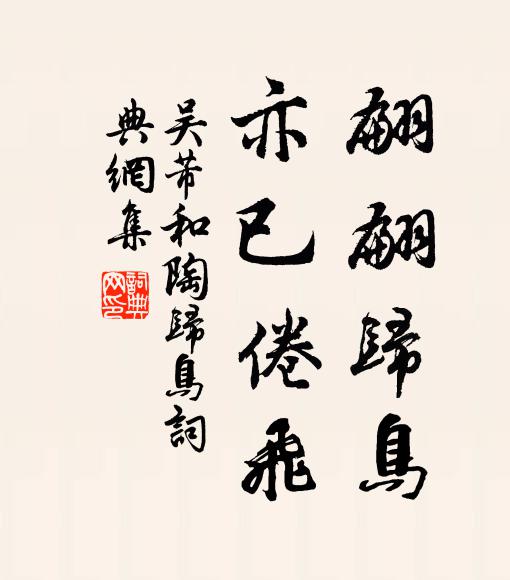 翩翩歸鳥
亦已倦飛
吴芾和陶歸鳥詞
典網集
詞典
网印